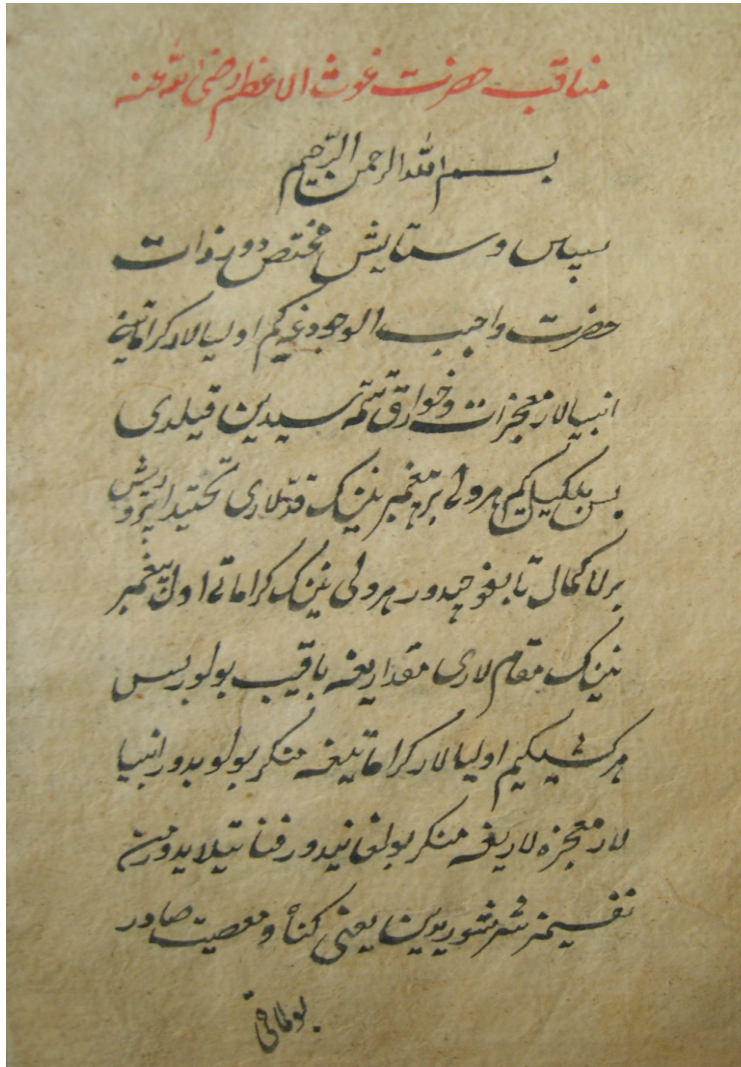 مناقب حضرت غوث الاعظم رضی الله عنه
بسم الله الرحمن الرحیم
سپاس و ستایش مختص دور ذات
حضرت واجب الوجودغه کیم اولیالار کراماتینی
انبیالار معجزات و خوارق تتمه سیدین قیلدی
بس بلکیل کیم هر ولی بر پیغمبر نینک قدملاری تحتیدا پرورش
برلا کمال تابغوچیدور هر ولی نینک کراماتی اول پیغمبر
نینک مقام لاری مقداریغه باقیب بولور بس
هر کشیکیم اولیالار کراماتیغه منکر بولوبدور انبیا
لار معجزه لاریغه منکر بولغانیدور فنا تیلایدورمن
نفسیمز شر شوریدین یعنی کناه و معصیت صادر
بولماقی